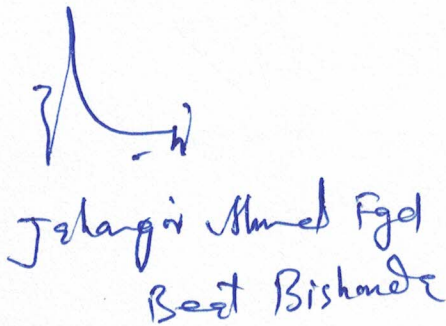 Jahangir Ahmed Fgd
Beat Bishamda